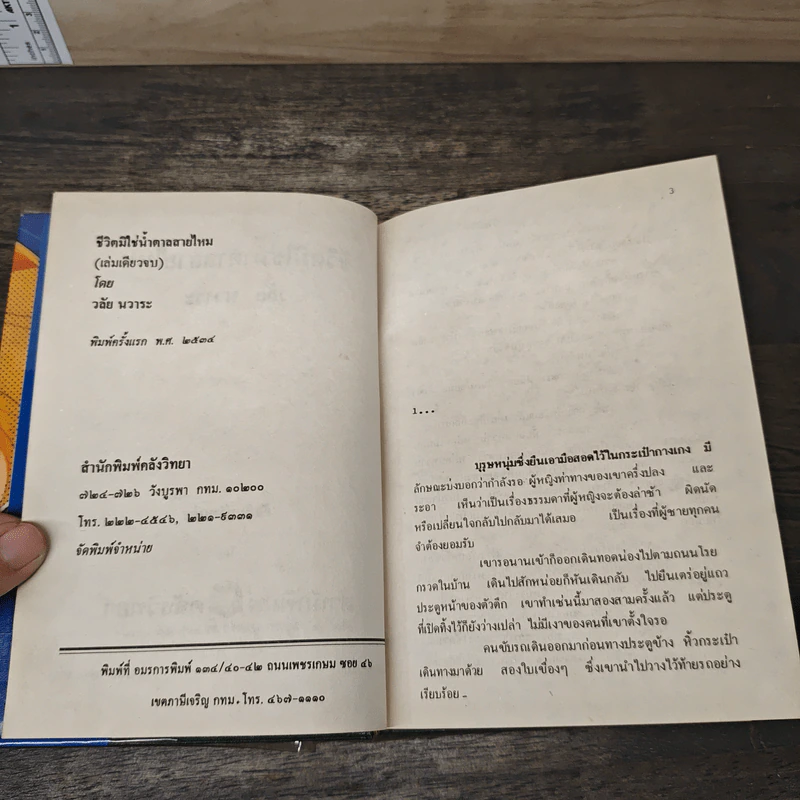 ชีวิตมิใช่น้ำตาลสายไหม
(เล่มเดียวจบ)
โดย
วลัย นวาระ
พิมพ์ครั้งแรก พ.ศ. ๒๕๓๔
สำนักพิมพ์คลังวิทยา
๗๒๔-๗๒๖ วังบูรพา กทม. ๑๐๒๐๐
โทร. ๒๒๒-๔๕๔๖, ๒๒๑-๙๓๓๑
จัดพิมพ์จำหน่าย
พิมพ์ที่ อมรการพิมพ์ ๑๓๔/๔๐-๔๒ ถนนเพชรเกษม ซอย ๔๖
เขตภาษีเจริญ กทม. โทร. ๔๖๗-๑๑๑๐
3
1...
บุรุษหนุ่มซึ่งยืนเอามือสอดไว้ในกระเป๋ากางเกง มี
ลักษณะบ่งบอกว่ากำลังรอ ผู้หญิงท่าทางของเขาครึ่งปลง และ
ระอา เห็นว่าเป็นเรื่องธรรมดาที่ผู้หญิงจะต้องล่าช้า ผิดนัด
หรือเปลี่ยนใจกลับไปกลับมาได้เสมอ เป็นเรื่องที่ผู้ชายทุกคน
จำต้องยอมรับ
เขารอนานเข้าก็ออกเดินทอดน่องไปตามถนนโรย
กรวดในบ้าน เดินไปสักหน่อยก็หันเดินกลับ ไปยืนเตร่อยู่แถว
ประตูหน้าของตัวตึก เขาทำเช่นนี้มาสองสามครั้งแล้ว แต่ประตู
ที่เปิดทิ้งไว้ก็ยังว่างเปล่า ไม่มีเงาของคนที่เขาตั้งใจรอ
คนขับรถเดินออกมาก่อนทางประตูข้าง หิ้วกระเป๋า
เดินทางมาด้วย สองใบเขื่องๆ ซึ่งเขานำไปวางไว้ท้ายรถอย่าง
เรียบร้อย -